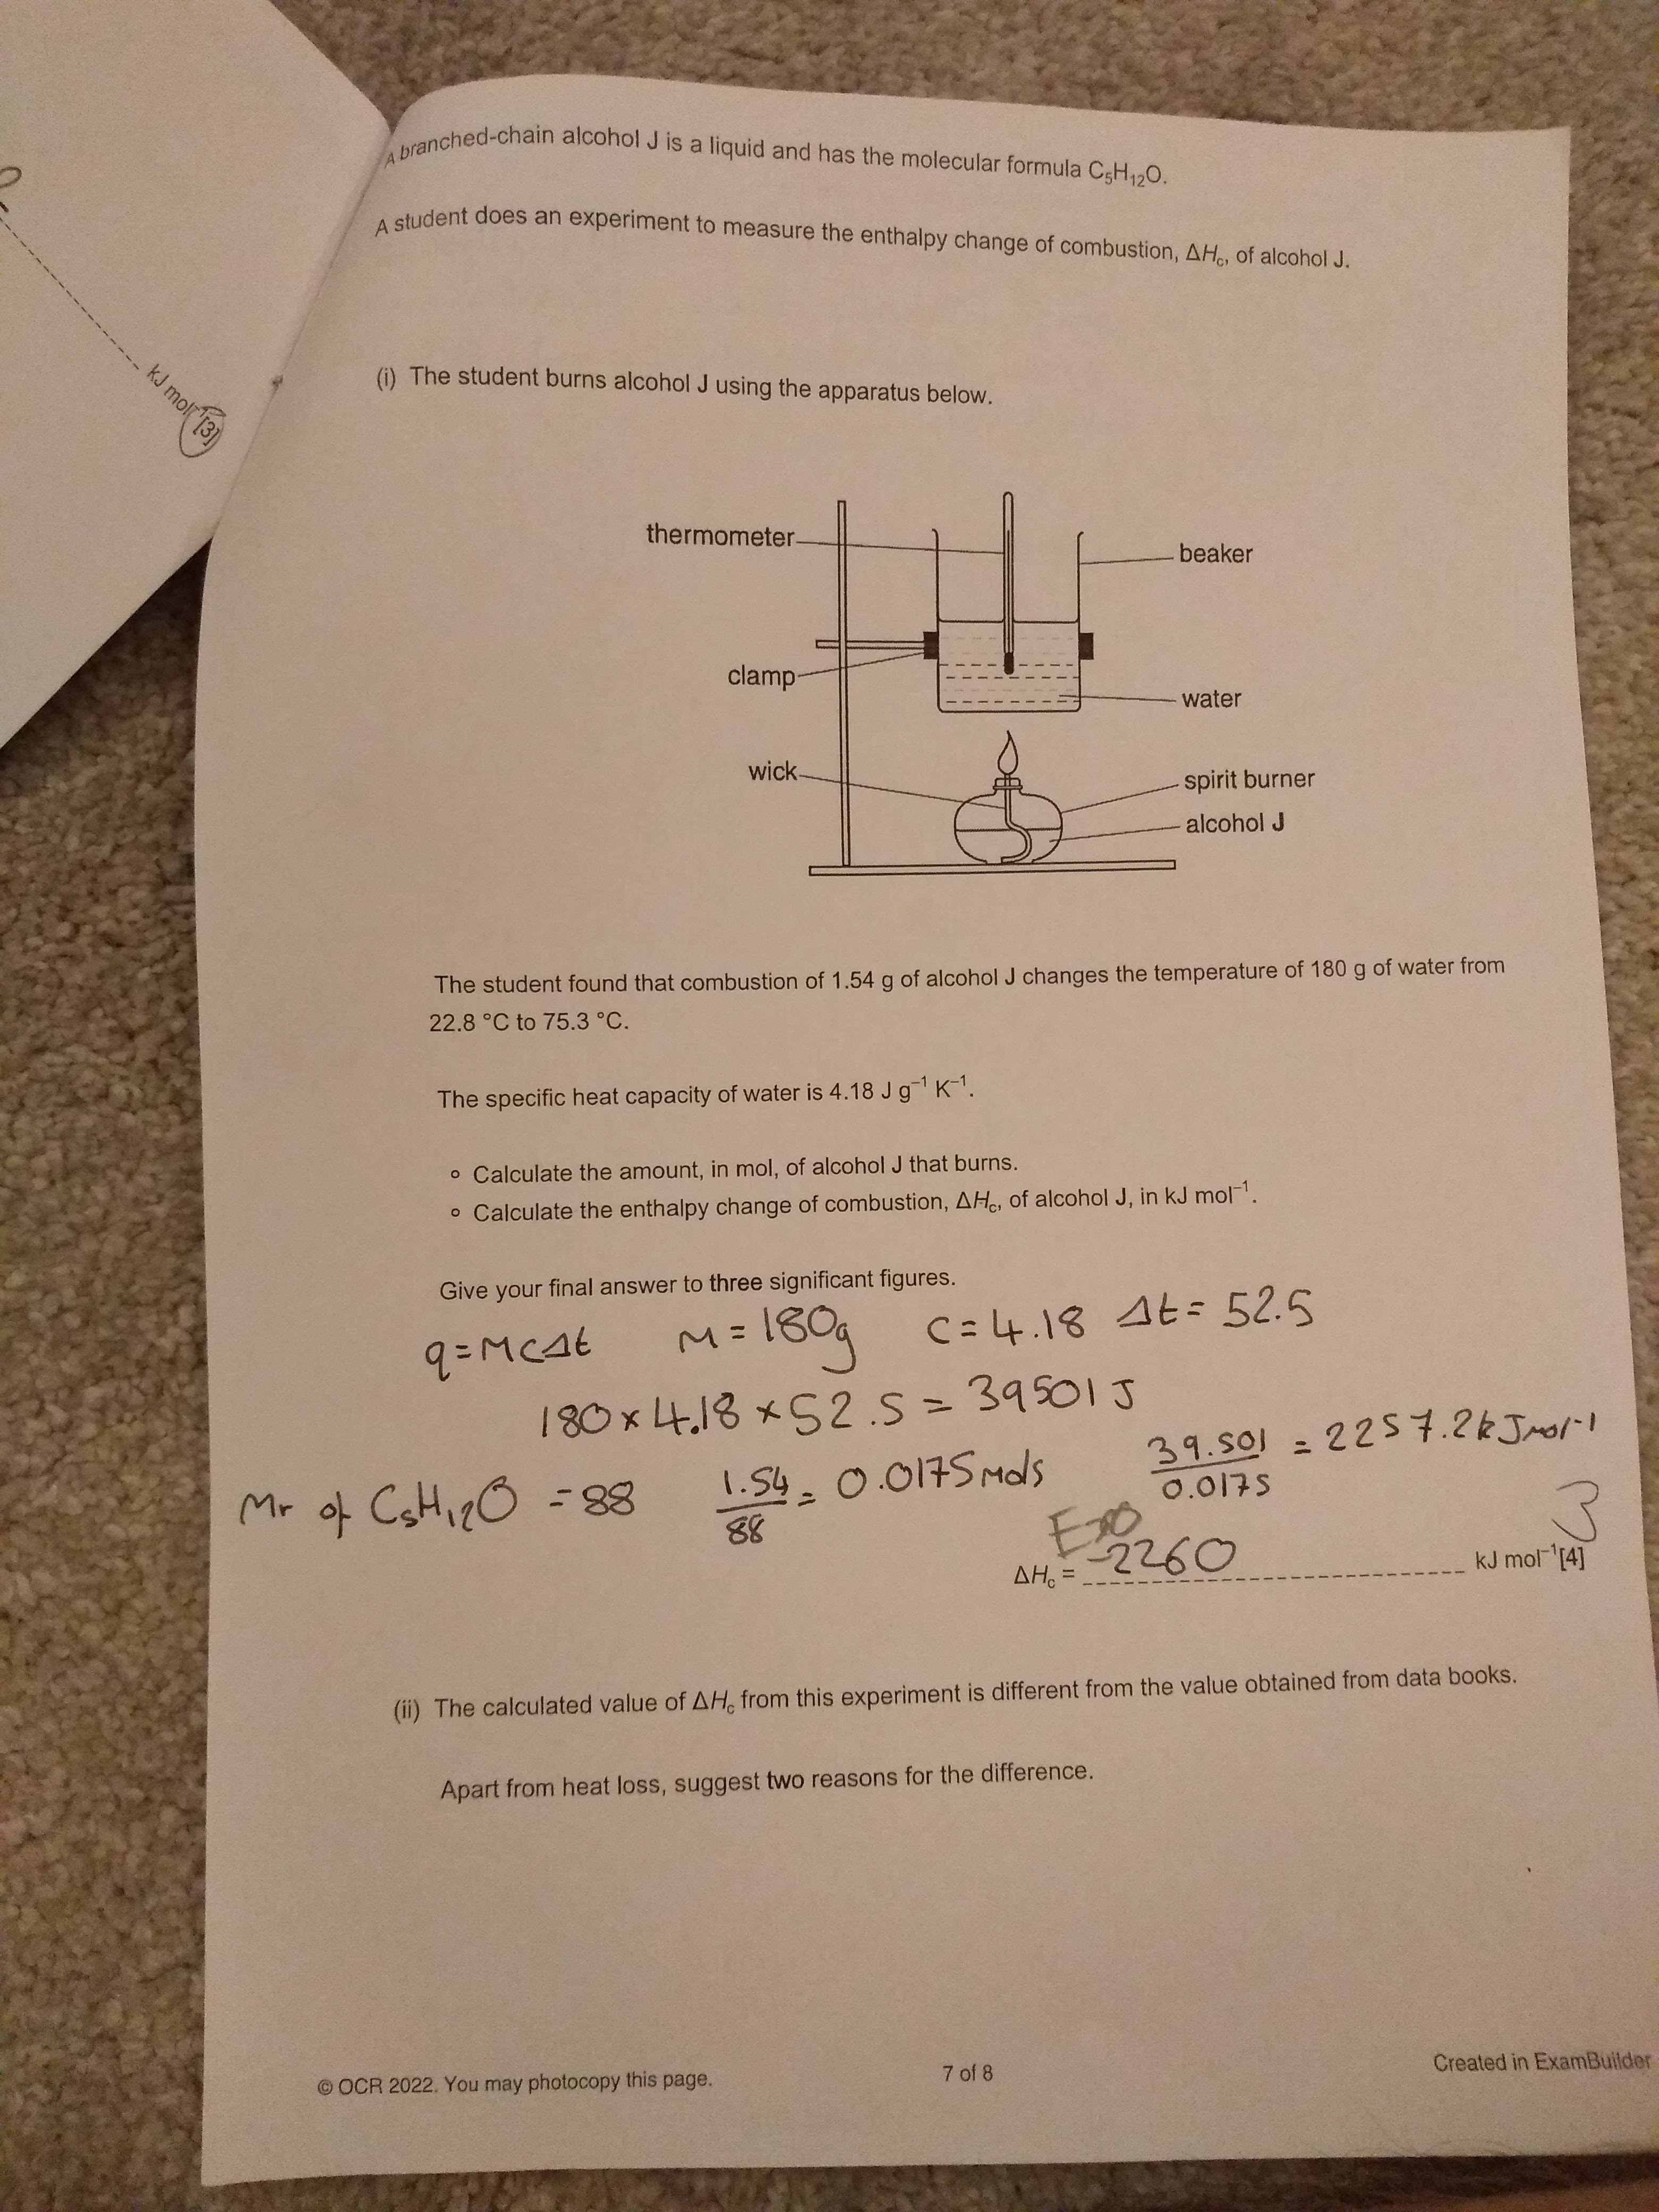 A branched-chain alcohol J is a liquid and has the molecular formula C₅H₁₂O.
A student does an experiment to measure the enthalpy change of combustion, ΔHc, of alcohol J.
kJ mol⁻¹[3]
(i) The student burns alcohol J using the apparatus below.
thermometer
beaker
clamp
water
wick
spirit burner
alcohol J
The student found that combustion of 1.54 g of alcohol J changes the temperature of 180 g of water from
22.8 °C to 75.3 °C.
The specific heat capacity of water is 4.18 J g⁻¹ K⁻¹.
° Calculate the amount, in mol, of alcohol J that burns.
° Calculate the enthalpy change of combustion, ΔHc, of alcohol J, in kJ mol⁻¹.
Give your final answer to three significant figures.
q=mcΔt m=180g c=4.18 Δt=52.5
180×4.18×52.5=39501J
Mr of C₅H₁₂O = 88 1.54/88 = 0.0175 mols 39.501/0.0175 = 2257.2kJmol⁻¹
3
Exo
ΔHc = -2260 kJ mol⁻¹[4]
(ii) The calculated value of ΔHc from this experiment is different from the value obtained from data books.
Apart from heat loss, suggest two reasons for the difference.
© OCR 2022. You may photocopy this page.
7 of 8
Created in ExamBuilder